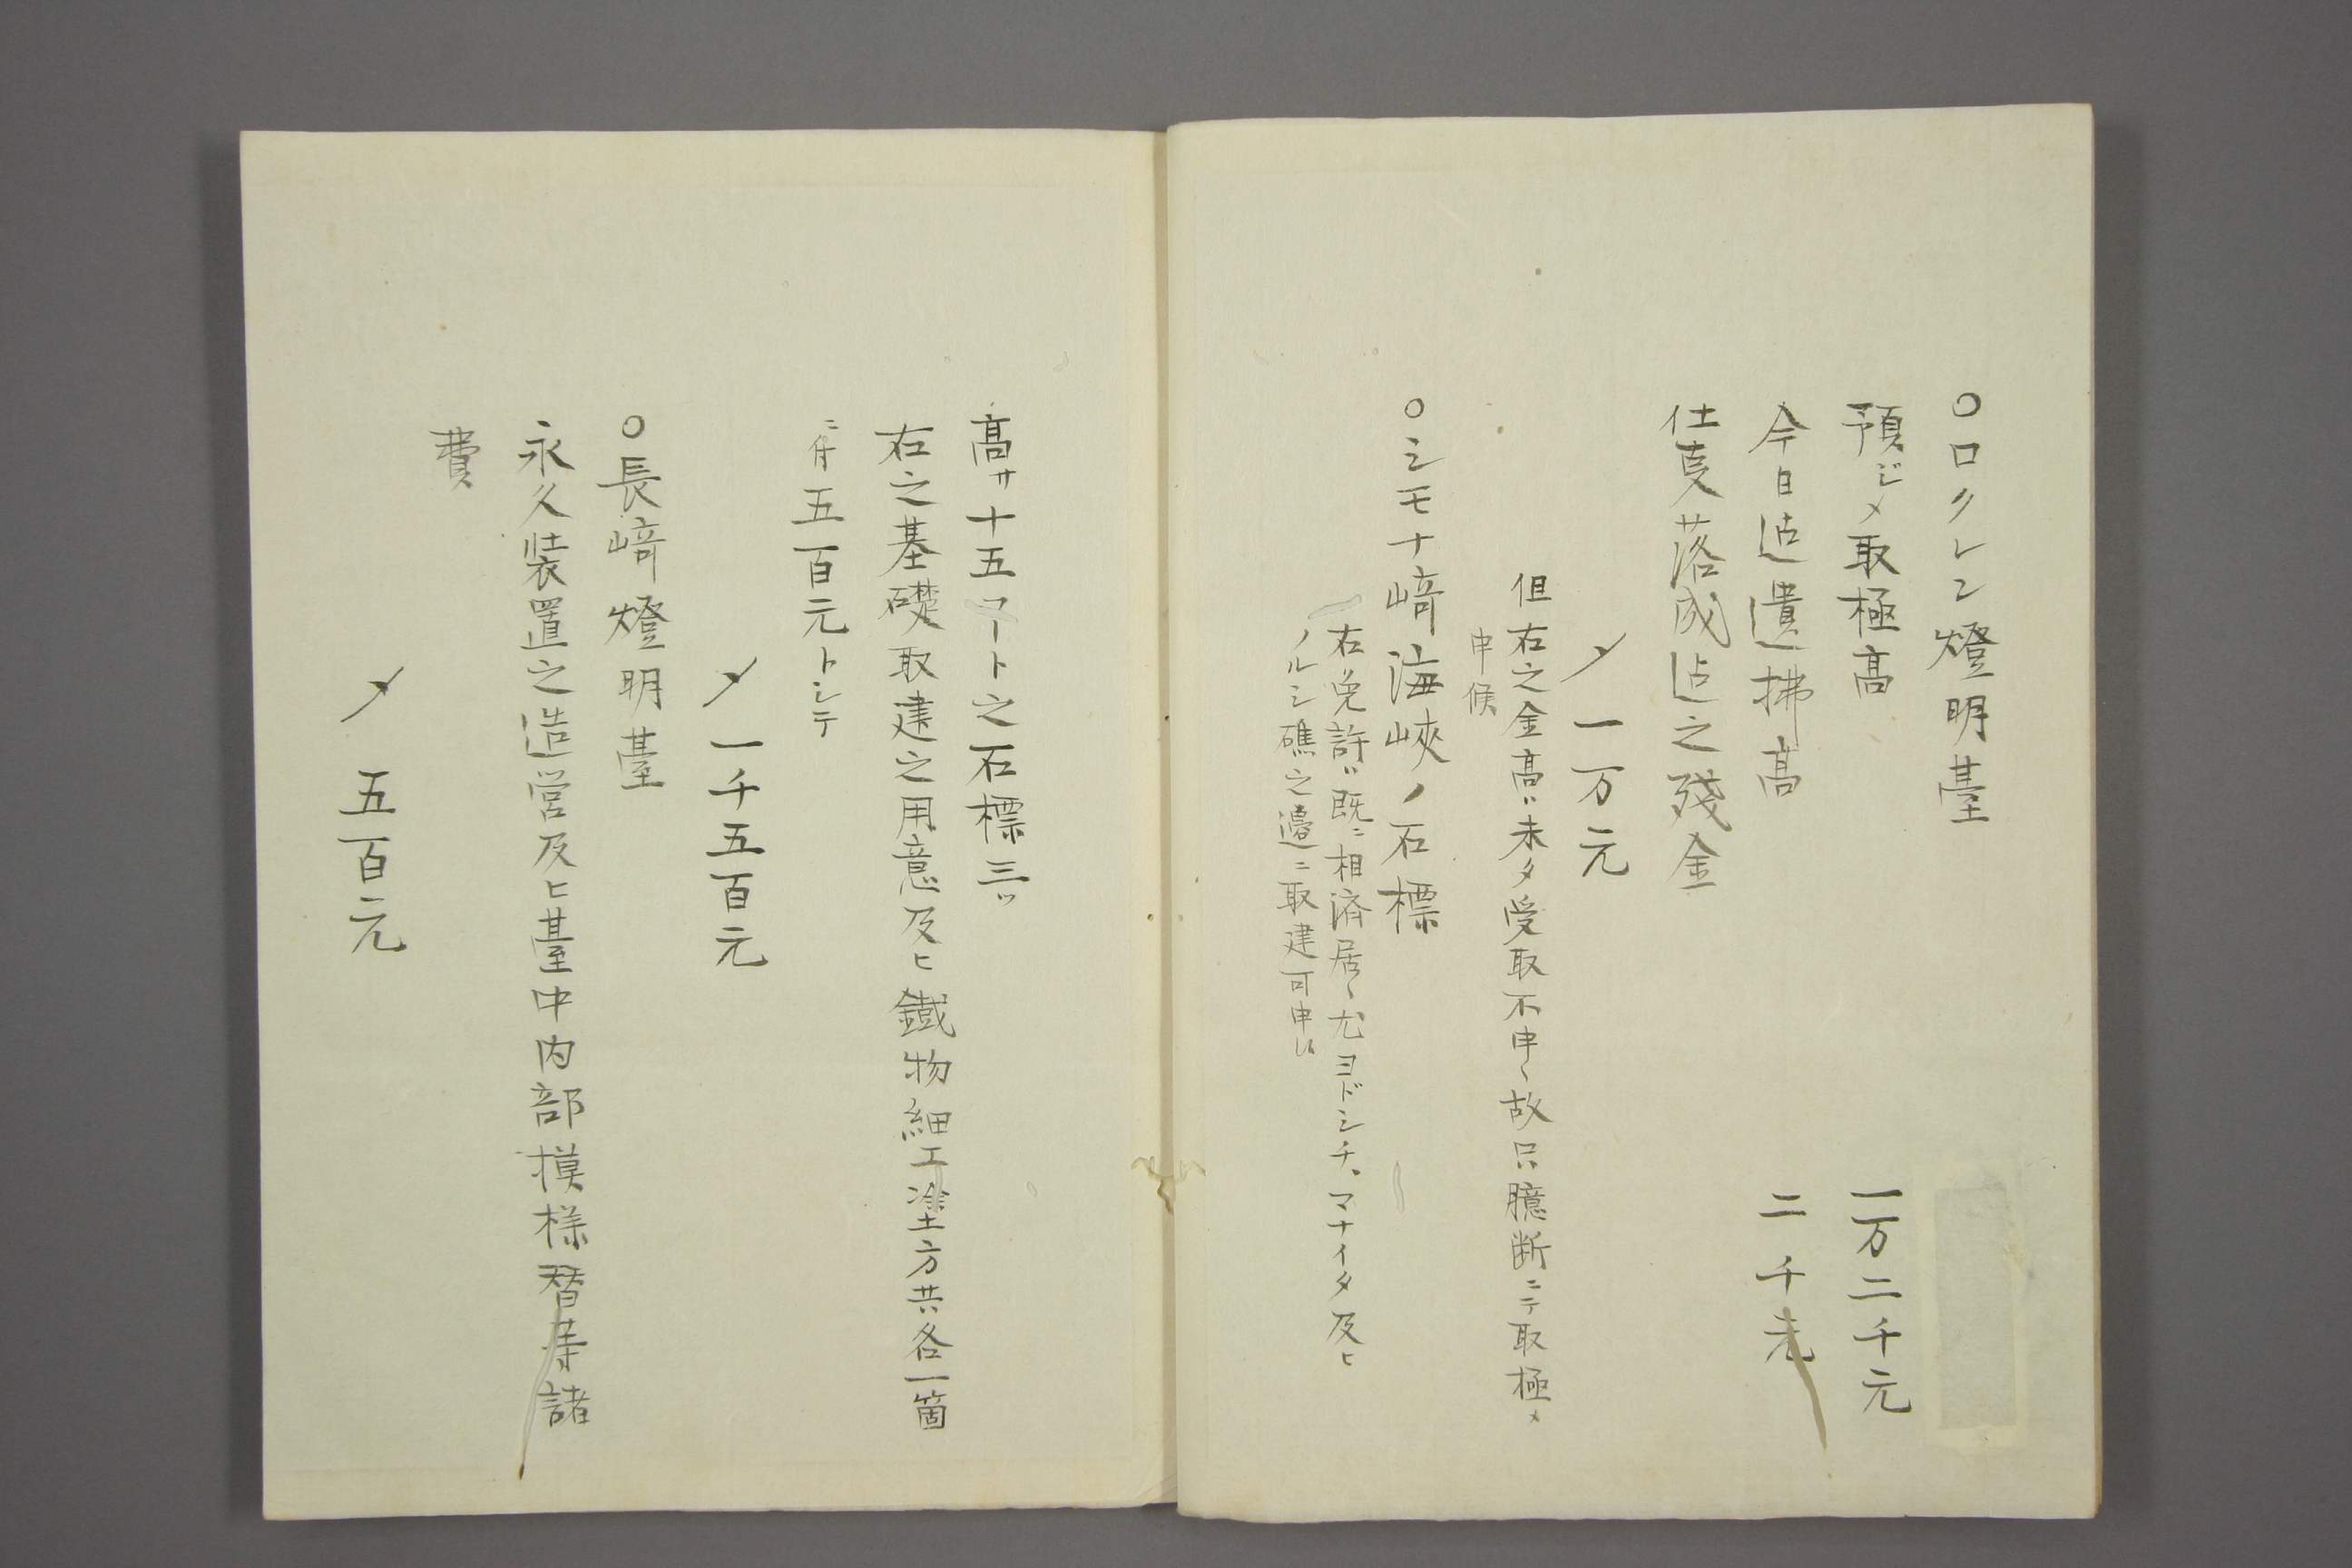 〇ロクレン燈明臺
預ジメ取極高 一万二千元
今日迠遣拂高 二千元
仕叓落成迠之殘金
〆一万元
但右之金高ハ未タ受取不申候故只臆断ニテ取極メ
申候
〇シモナ﨑海峽ノ石標
右免許ハ既ニ相済居候尤ヨドシチ、マナイタ及ヒ
ノルシ礁之邉ニ取建可申候
高サ十五フート之石標三ツ
右之基礎取建之用意及ヒ鐵物細工塗方共各一箇
ニ付五百元トシテ
〆一千五百元
〇長﨑燈明臺
永久装置之造営及ヒ臺中内部摸様替等諸
費
〆五百元